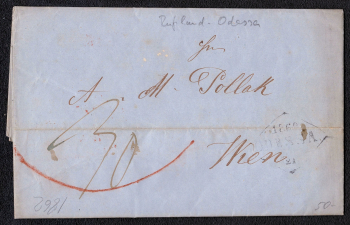 Rußland - Odessa
Herrn
A. M. Pollak
30
Wien
1862
50.-